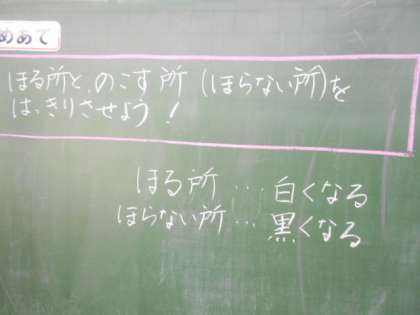 めあて
ほる所と、のこす所(ほらない所)を
はっきりさせよう!
ほる所…白くなる
ほらない所…黒くなる